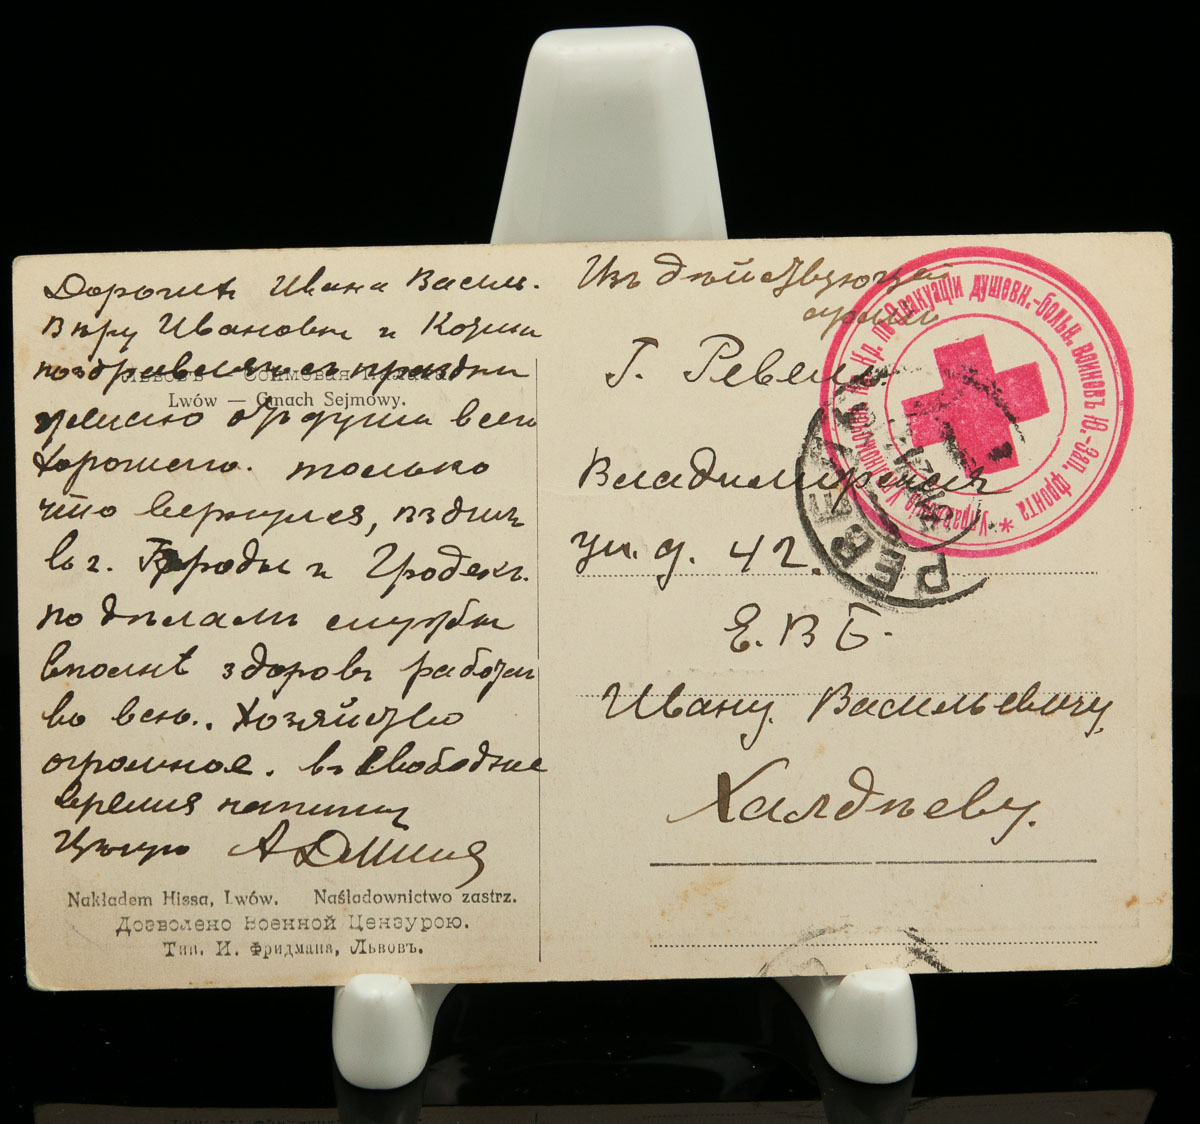 Дорогих Ивана Василь.
Вѣру Ивановну и
поздравляю съ праздни
желаю отъ души всего
хорошего. только
что вернулся, ѣздил
в г. Броды и Гродекъ.
по дѣламъ службы
вполнѣ здоровъ работаю
во всю.. Хозяйство
огромное. въ свободное
время напишу
Цѣлую
Львовъ — Соймовая Палата
Lwów — Gmach Sejmowy.
Nakładem Hissa, Lwów. Naśladownictwo zastrz.
Дозволено Военной Цензурою.
Тип. И. Фридмана, Львовъ.
Изъ дѣйствующей
армiи
Г. Ревель
Владимирская
ул. д. 42.
Е. В Б.
Ивану Васильевичу
Халдѣеву.
РЕВЕЛЬ
* Управленiе Уполномоч. Кр. Кр. по Эвакуацiи душевн.-больн. воиновъ Ю.-Зап. фронта